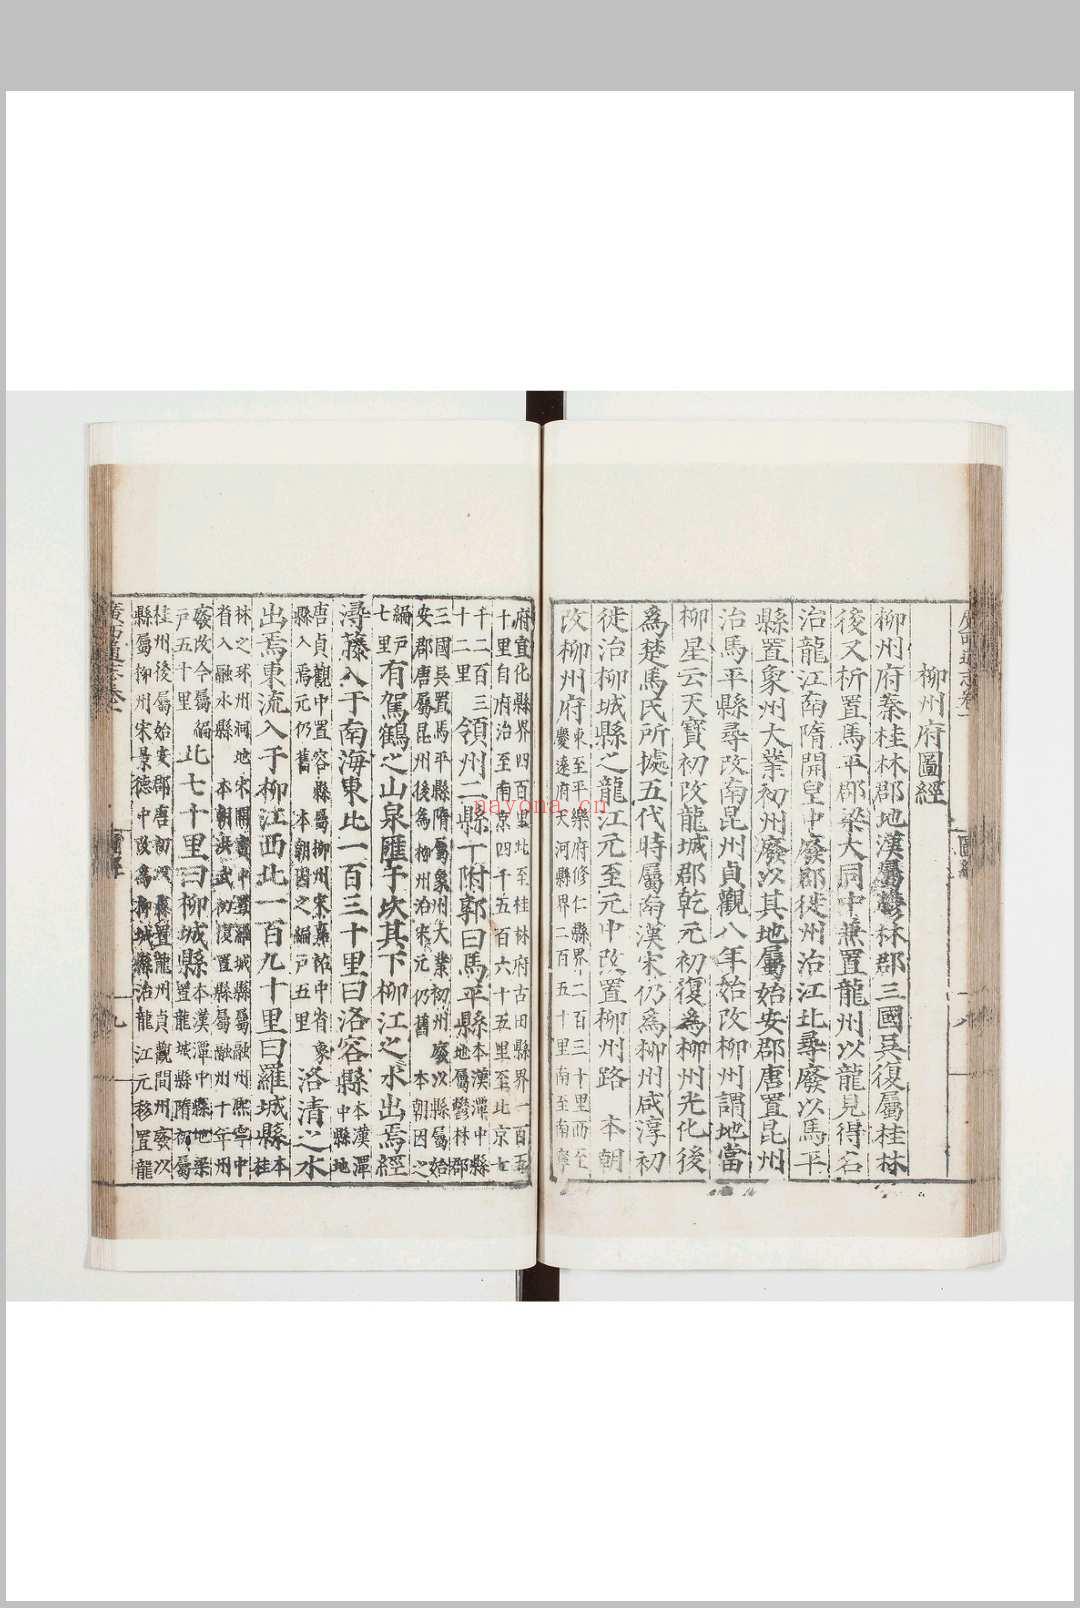 柳州府圖經
柳州府秦桂林郡地漢屬鬱林郡三國吳復屬桂林
後又析置馬平郡梁大同中兼置龍州以龍見得名
治龍江南隋開皇中廢郡徙州治江北尋廢以馬平
縣置象州大業初州廢以其地屬始安郡唐置昆州
治馬平縣尋改南昆州貞觀八年始改柳州謂地當
柳星云天寶初改龍城郡乾元初復為柳州光化後
爲楚馬氏所據五代時屬南漢宋仍爲柳州咸淳初
徙治柳城縣之龍江元至元中改置柳州路 本朝
改柳州府東至平樂府修仁縣界二百三十里西至
慶遠府天河縣界二百五十里南至南寧
府宣化縣界四百里北至桂林府古田縣界一百五
十里自府治至南京四千五百六十五里至北京七
千二百三
十二里領州二縣十附郭曰馬平縣本漢潭中縣
地屬鬱林郡
三國吳置馬平縣隋屬象州大業初州廢以縣屬始
安郡唐屬昆州後為柳州治宋元仍舊 本朝因之
編戶
七里有駕鶴之山泉匯于坎其下柳江之水出焉經
潯藤入于南海東北一百三十里曰洛容縣本漢潭
中縣地
唐貞觀中置容縣屬柳州宋嘉祐中省象
縣入焉元仍舊 本朝因之編戶五里洛清之水
出焉東流入于柳江西北一百九十里曰羅城縣本
桂
林之琳州洞地宋開寶中置羅城縣屬融州熙寧中
省入融水縣 本朝洪武初復置縣屬融州十年州
廢改今屬編
戶五十里北七十里曰柳城縣本漢潭中縣地梁
置龍城縣隋初屬
桂州後屬始安郡唐初以縣置龍州貞觀間州廢以
縣屬柳州宋景德中改為柳城縣治龍江元移置龍
圖經
十九
nayona.cn